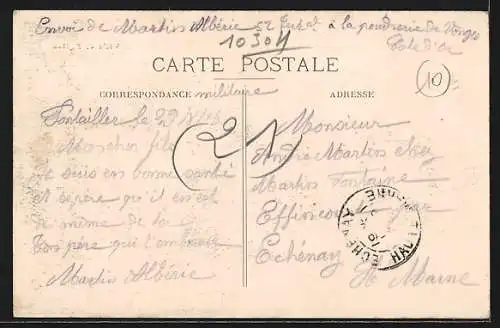 Envoi de Martin Albéric 52 Turat à la poudrerie de Vonges
Côte d'or
10304
10
CARTE POSTALE
CORRESPONDANCE militaire
ADRESSE
Pontailler le 29
Mon cher fils
Je suis en bonne santé
et espère qu'il en est
de même de toi
Ton père qui t'embrasse
Martin Albéric
21
Monsieur
André Martin chez
Martin Fontaine
Effincourt par
Echénay
Hte Marne
ECHENAY
HAUTE MARNE